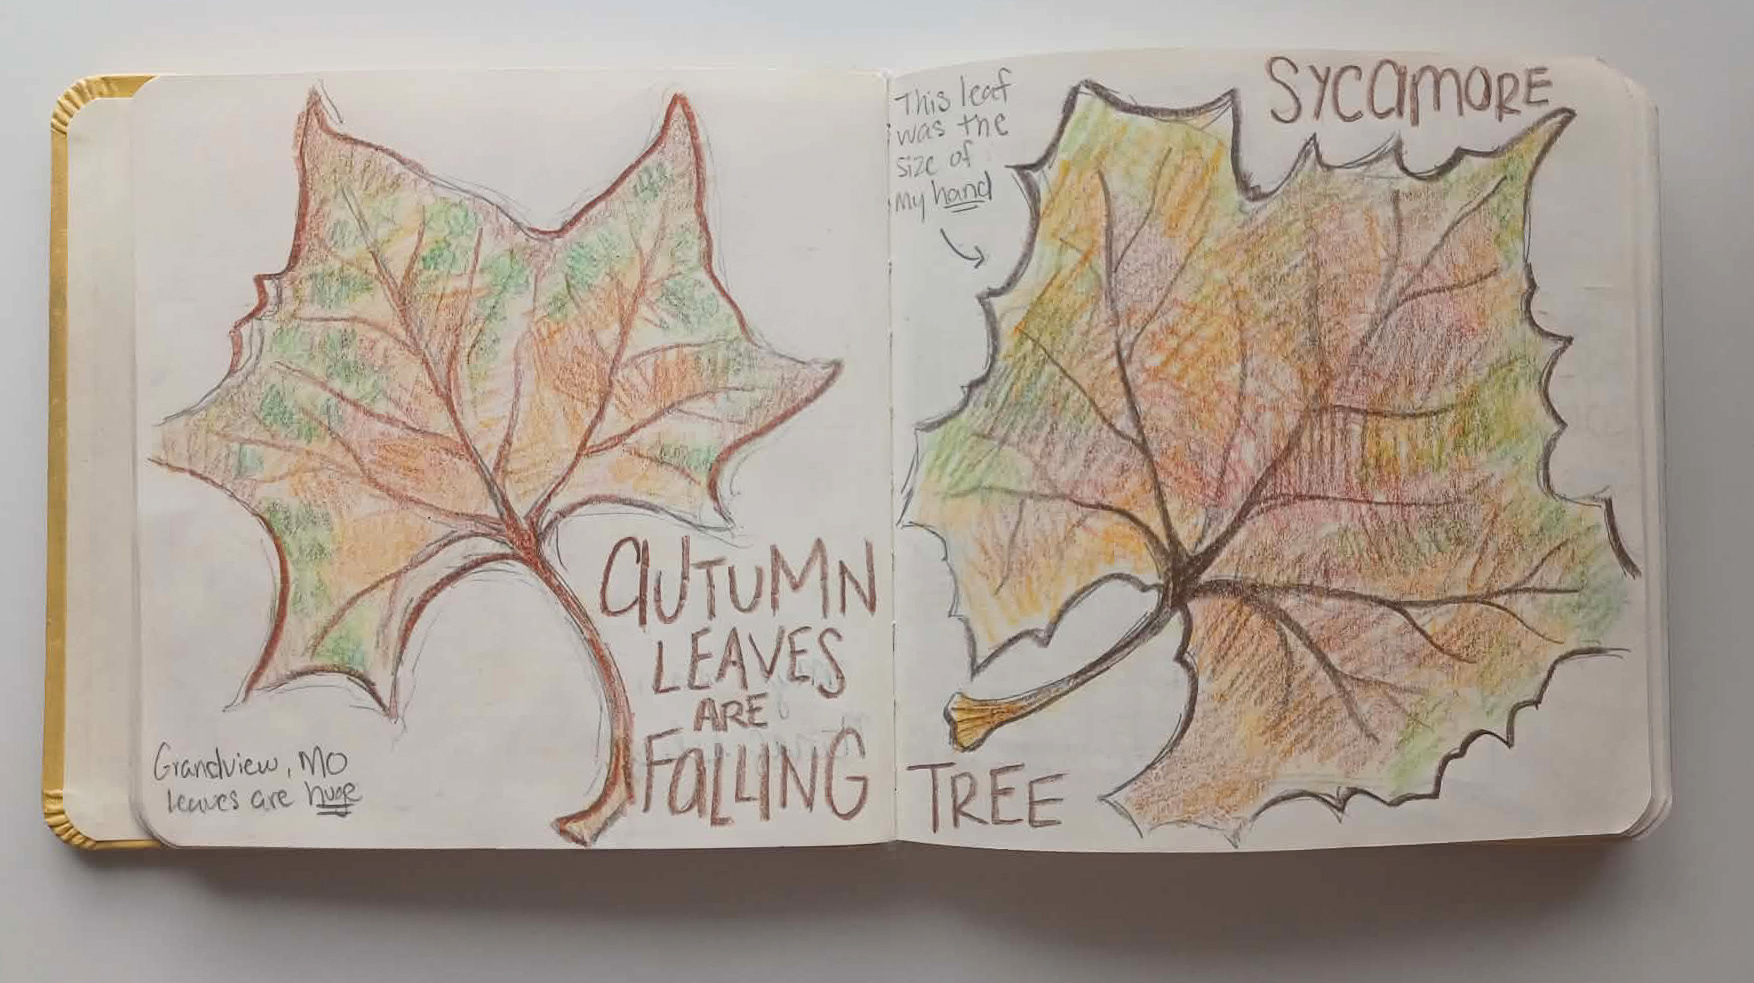 AUTUMN
LEAVES
ARE
FALLING
Grandview, MO
leaves are huge
This leaf
was the
size of
My hand
SYCAMORE
TREE